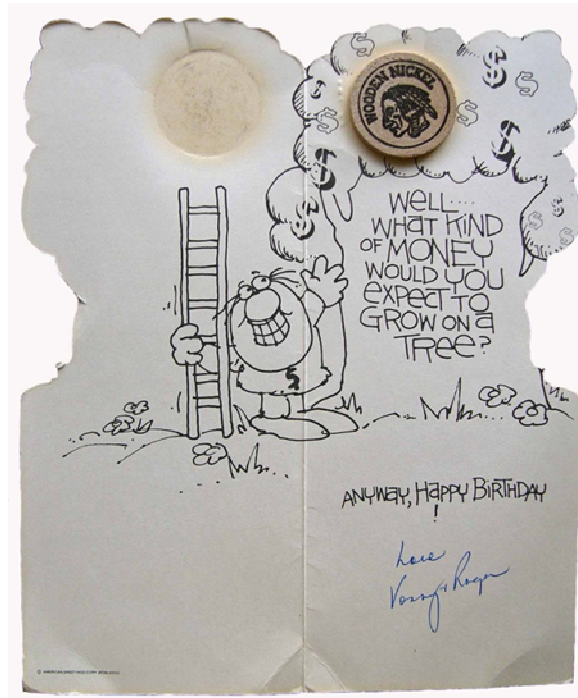 WOODEN NICKEL
WELL....
WHAT KIND
OF MONEY
WOULD YOU
EXPECT TO
GROW ON A
TREE?
ANYWAY, HAPPY BIRTHDAY
!
Love
© AMERICAN GREETINGS CORP.